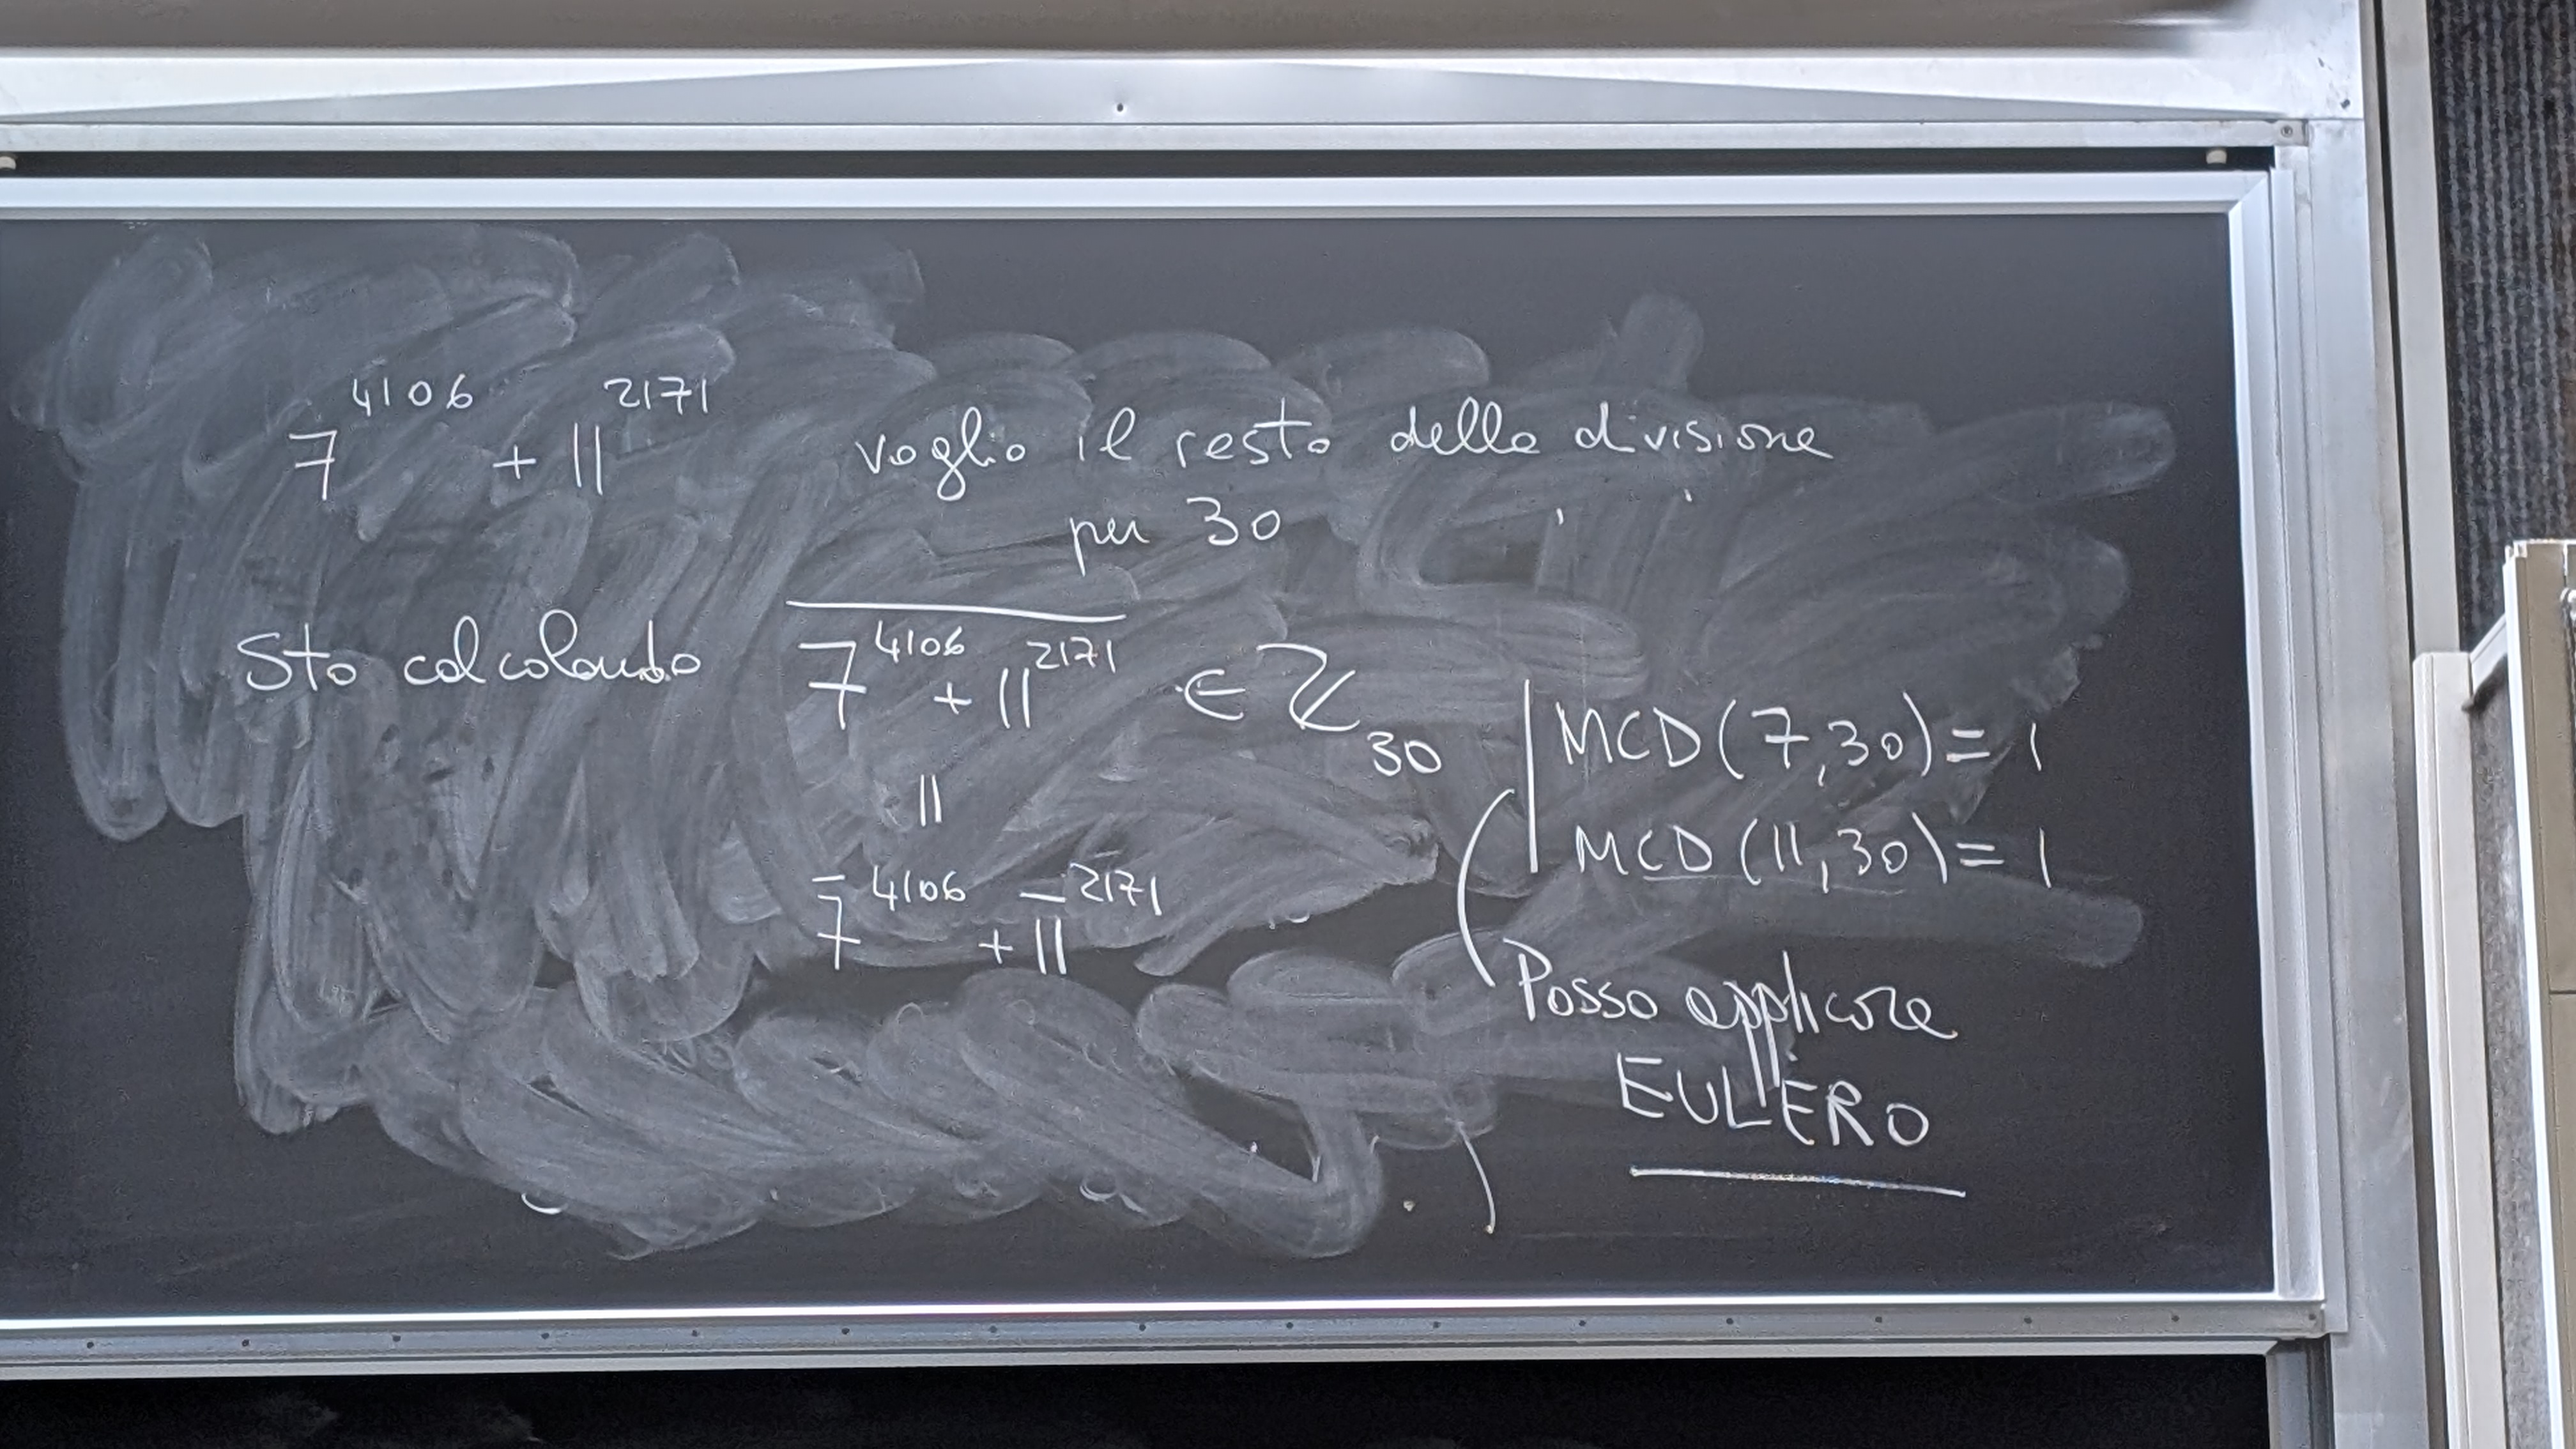 7^4106 + 11^2171 voglio il resto della divisione
per 30
Sto calcolando \overline{7^4106 + 11^2171} ∈ ℤ_30
MCD(7,30) = 1
||
MCD(11,30) = 1
\overline{7}^4106 + \overline{11}^2171
Posso applicare
EULERO